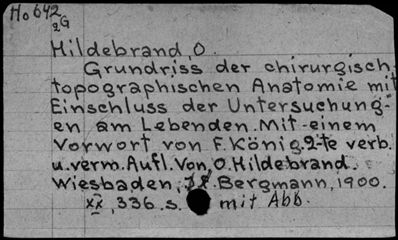 Ho642
2G
Hildebrand, O.
Grundriss der chirurgisch-
topographischen Anatomie mit
Einschluss der Untersuchung-
en am Lebenden. Mit einem
Vorwort von F. König. 2-te verb.
u. verm. Aufl. Von O. Hildebrand.
Wiesbaden, J.F. Bergmann, 1900.
xx, 336. s. mit Abb.